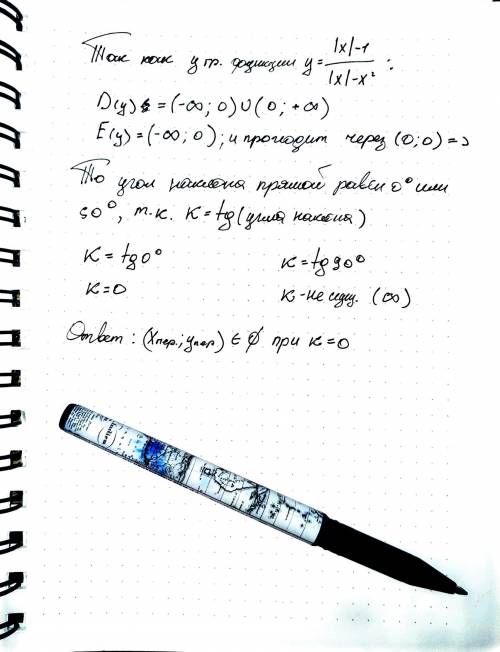 Так как у гр. функции y = |x|-1 / |x|-x² :
D(y) = (-∞; 0)∪(0; +∞)
E(y) = (-∞; 0); и проходит через (0; 0) =>
То угол наклона прямой равен 0° или
90°, т.к. K = tg (угла наклона)
K = tg 0° K = tg 90°
K = 0 K - не сущ. (∞)
Ответ: (Xпер.; yпер) ∈ ∅ при K = 0